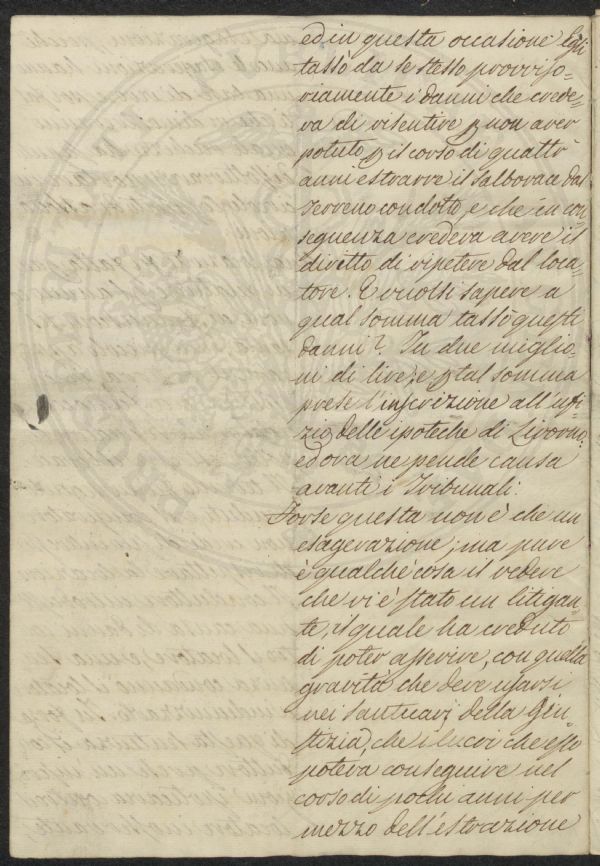 ed in questa occasione Egli
tassò da se stesso provviso-
riamente i danni che crede-
va di risentire p non aver
potuto p il corso di quattr'
anni estrarre il Salborace dal
Terreno condotto, e che in con
seguenza credeva avere il
diritto di ripetere dal loca-
tore. E vuolsi sapere a
qual somma tassò questi
danni? In due milio-
ni di lire; e p tal somma
prese l'inscrizione all'ufi-
zio delle ipoteche di Livorno,
ed ora ne pende causa
avanti i Tribunali.
Forse questa non è che un
esagerazione; ma pure
è qualche cosa il vedere
che vi è stato un litigan-
te, il quale ha creduto
di poter asserire, con quella
gravità che deve usarsi
nei Santuarj della Giu-
stizia, che i lucri che esso
poteva conseguire nel
corso di pochi anni per
mezzo dell'estrazione